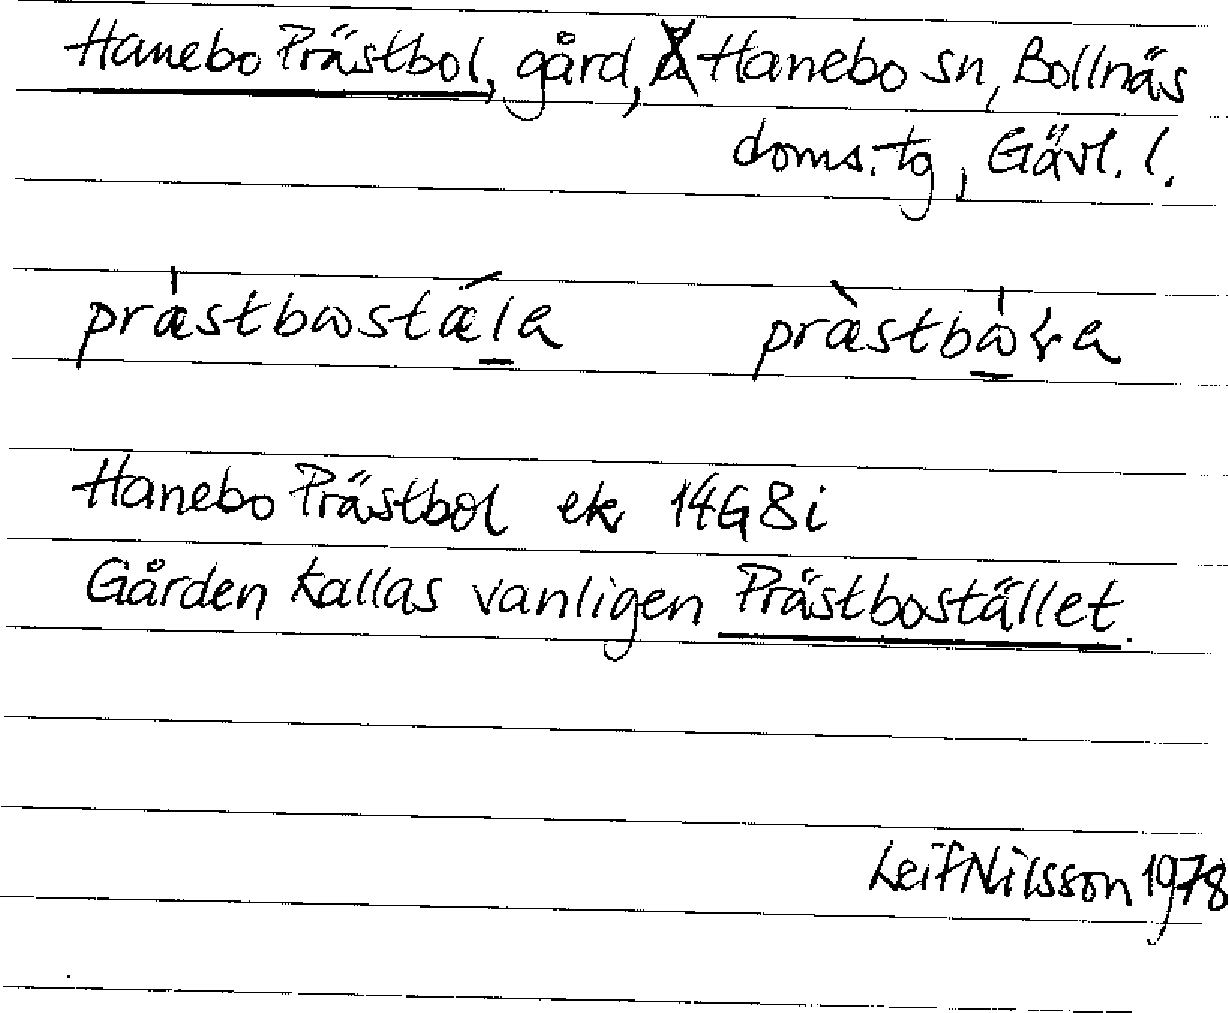 Hanebo Prästbol, gård, Hanebo sn, Bollnäs
doms.tg, Gävl. l.
Hanebo Prästbol ek 14G8i
Gården kallas vanligen Prästbostället.
Leif Nilsson 1978